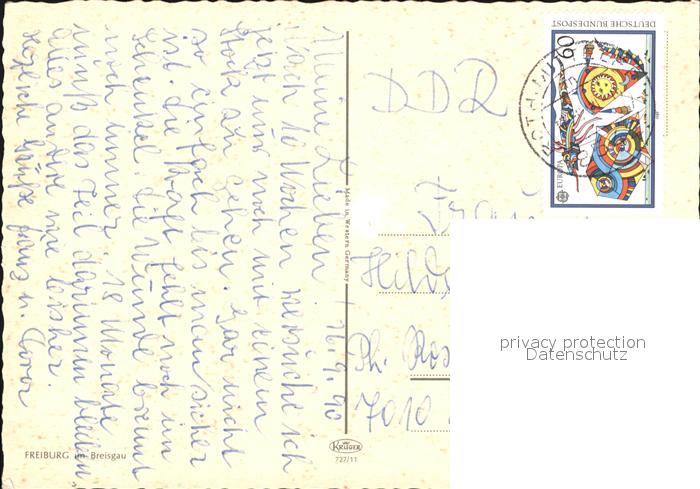 Meine Lieben, 26.9.90
Nach 16 Wochen versuche ich
jetzt nur noch mit einem
Stock zu gehen. Gar nicht
so einfach bis man sicker
ist. Die Kraft fehlt noch im
Schenkel. Die Wunde brennt
noch immer. 18 Monate
muß das Teil darinnen bleiben,
alles andere wie bisher.
Herzliche Grüße Franz u.
DDR
Frau
Ph. Ros
7010
Made in Western Germany
FREIBURG im Breisgau
KRÜGER
727/11
DEUTSCHE BUNDESPOST
60
EUROPA
privacy protection
Datenschutz